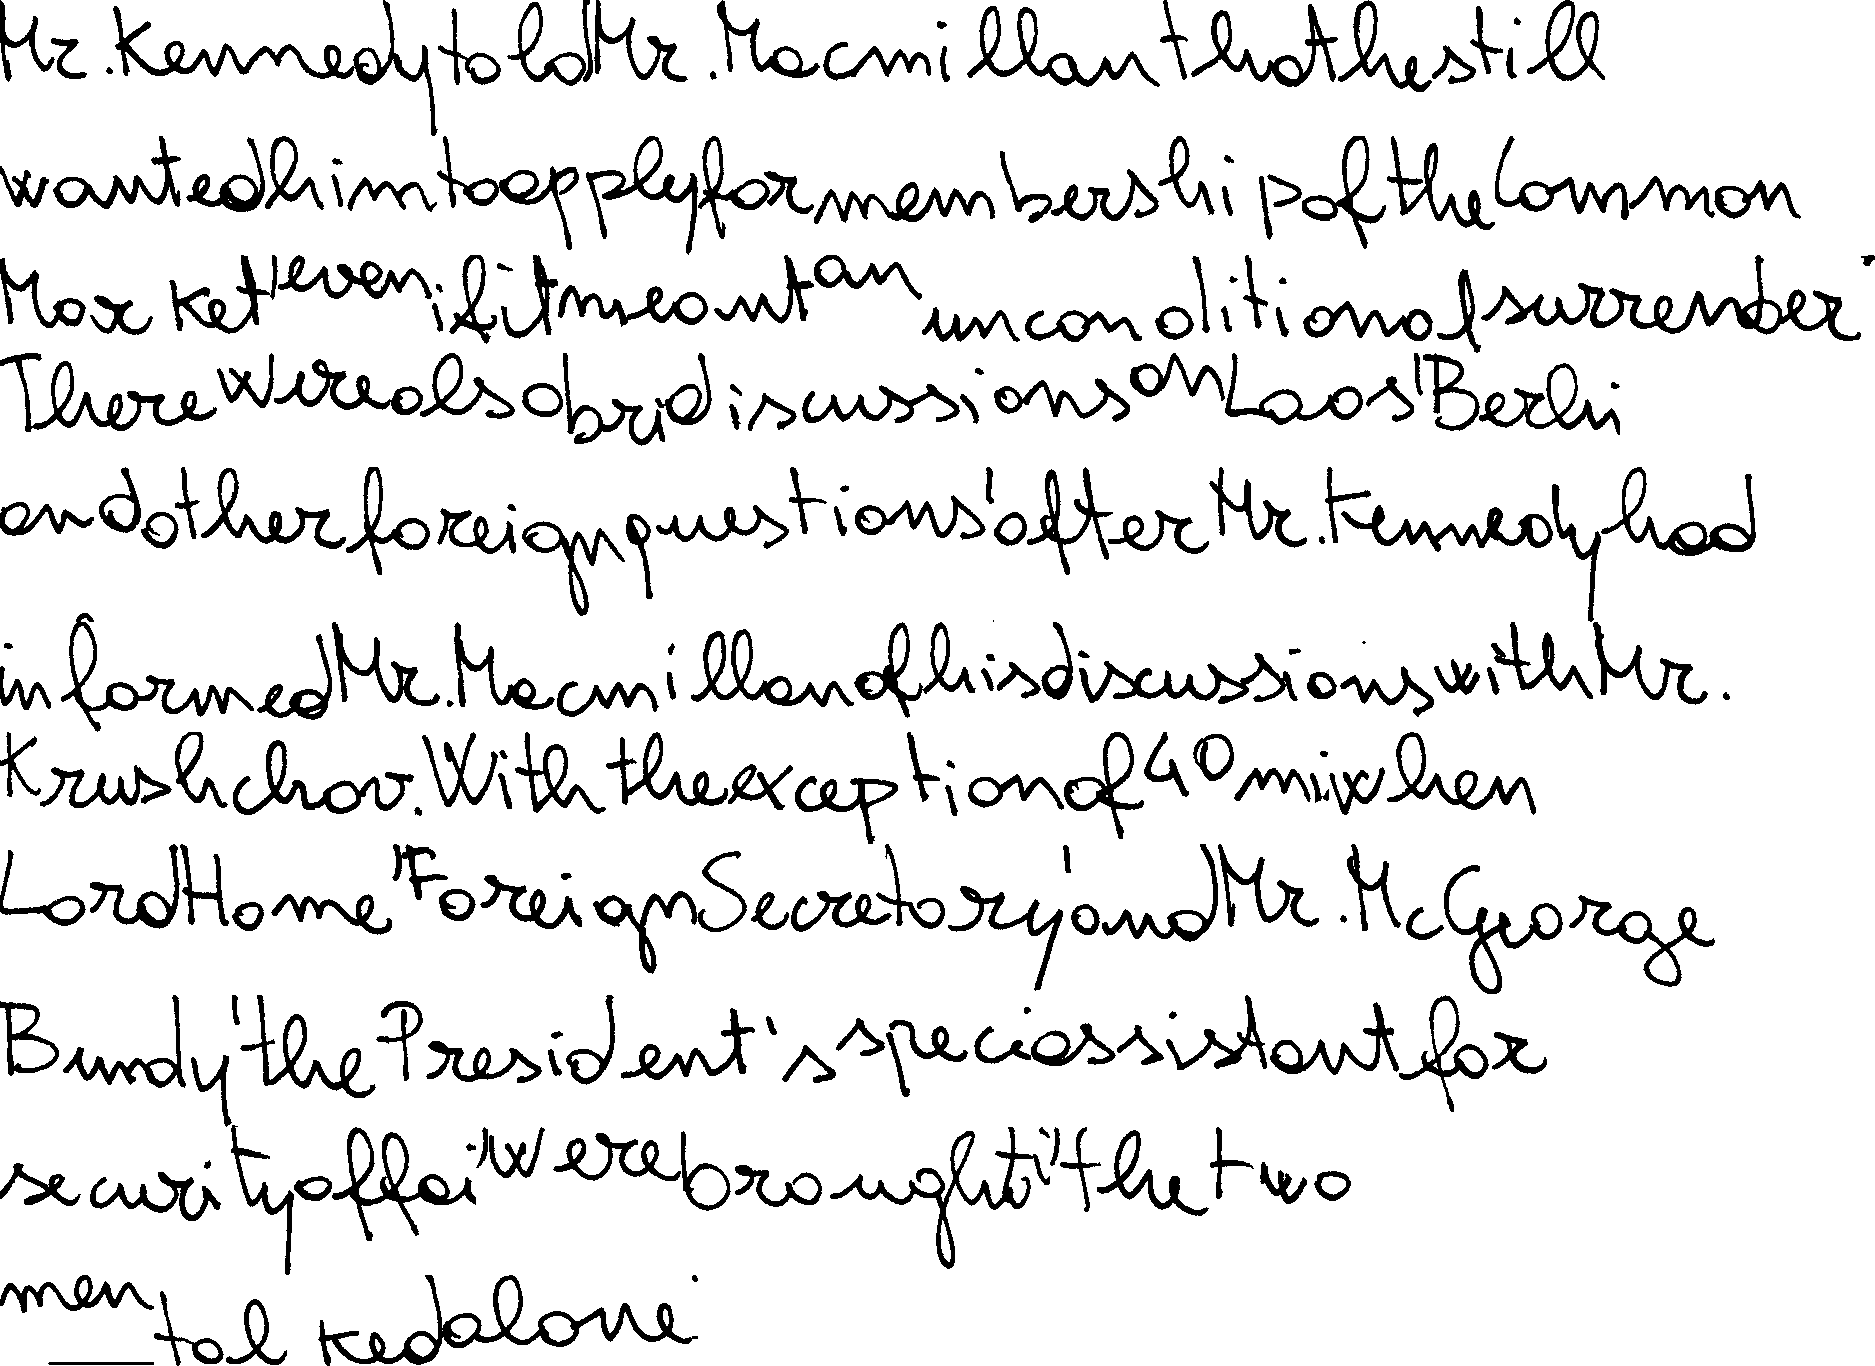 Mr. Kennedy told Mr. Macmillan that he still
wanted him to apply for membership of the Common
Market, even if it meant an unconditional surrender.
There were also bri discussions on Laos, Berlin
and other foreign questions, after Mr. Kennedy had
informed Mr. Macmillan of his discussions with Mr.
Krushchov. With the exception of 40 mi when
Lord Home, Foreign Secretary, and Mr. McGeorge
Bundy, the President's speci assistant for
security affai, were brought i, the two
men talked alone.